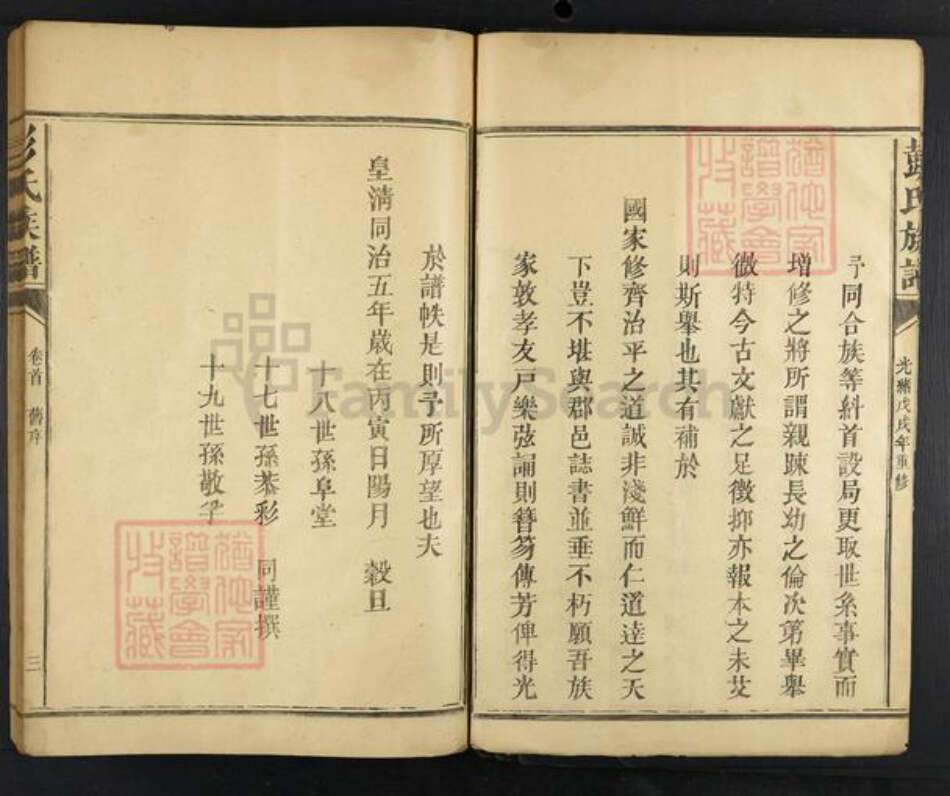 彭氏族譜
光緒戊戌年重修
予同合族等斜首設局更取世系事實而
增修之將所謂親踈長幼之倫次第畢舉
微特今古文獻之足徵抑亦報本之未艾
則斯舉也其有補於
國家修齊治平之道誠非淺鮮而仁道達之天
下豈不堪與郡邑誌書並垂不朽願吾族
家敦孝友戸樂弦誦則簪笏傳芳俾得光
於譜帙是則予所厚望也夫
皇淸同治五年歲在丙寅日陽月 穀旦
十八世孫阜堂
十七世孫恭彩 同謹撰
十九世孫敬孚
彭氏族譜
卷首 舊序
三
FamilySearch